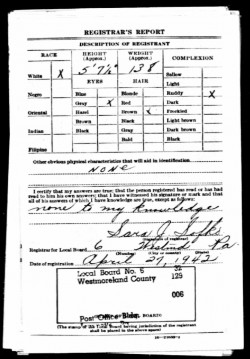 REGISTRAR'S REPORT
DESCRIPTION OF REGISTRANT
RACE
HEIGHT (Approx.)
WEIGHT (Approx.)
COMPLEXION
5' 7½"
138
White X
EYES
HAIR
Sallow
Light
Negro
Blue
Blonde
Ruddy X
Gray X
Red
Dark
Oriental
Hazel
Brown X
Freckled
Brown
Black
Light brown
Indian
Black
Gray
Dark brown
Bald
Black
Filipino
Other obvious physical characteristics that will aid in identification
none
I certify that my answers are true; that the person registered has read or has had
read to him his own answers; that I have witnessed his signature or mark and that
all of his answers of which I have knowledge are true, except as follows:
none to my knowledge
Sara J.
Registrar for Local Board 6 Pa
(Number) (City or county) (State)
Date of registration April 27, 1942
Local Board No. 6 32
Westmoreland County 129
006
Post Office Bldg.
BOARD)
(The stamp of the Local Board having jurisdiction of the registrant
shall be placed in the above space)